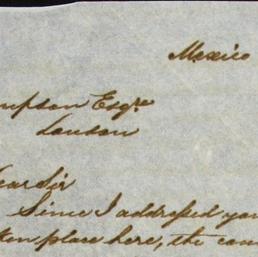 Mexico
mpson Esqre
London
Dear Sir
Since I addressed you
ken place here, the con